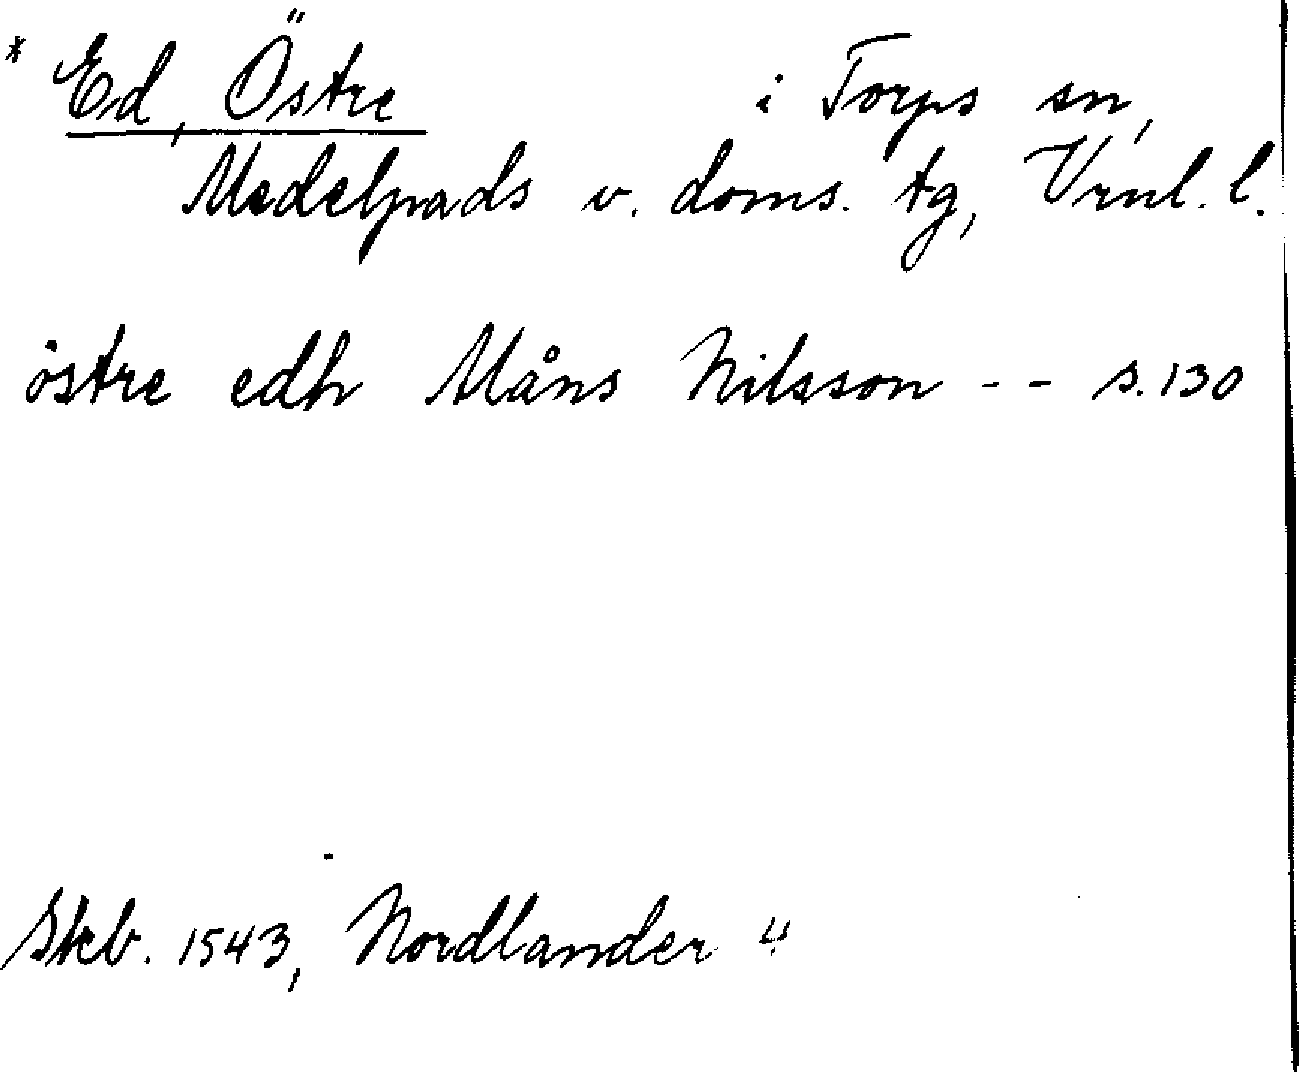 * Ed, Östre i Torps sn,
Medelpads v. doms. tg, Vrnl. l.
östre edh Måns Nilsson - - s. 130
Skb. 1543, Nordlander 4